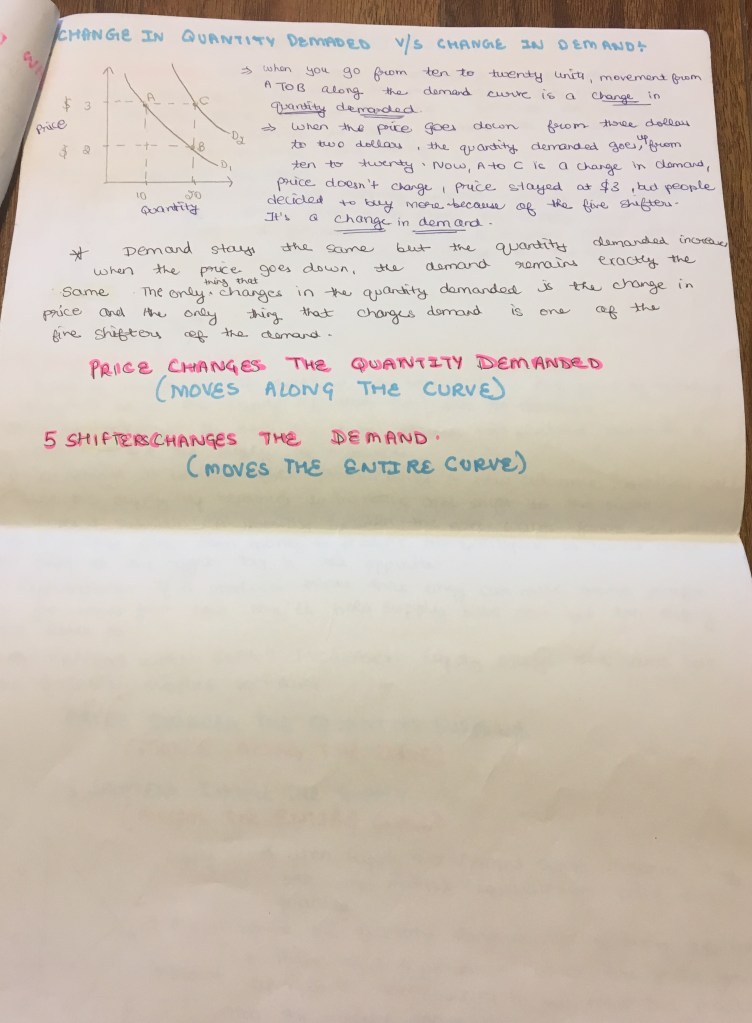 CHANGE IN QUANTITY DEMADED V/S CHANGE IN DEMAND:
⇒ when you go from ten to twenty units, movement from
A TO B along the demand curve is a change in
quantity demanded.
⇒ when the price goes down from three dollars
to two dollars, the quantity demanded goes up from
ten to twenty. Now, A to C is a change in demand,
price doesn't change, price stayed at $3, but people
decided to buy more because of the five shifters.
It's a change in demand.
$ 3
Price
$ 2
A
C
B
D2
D1
10 20
Quantity
* Demand stays the same but the quantity demanded increase
when the price goes down, the demand remains exactly the
same. The only thing that changes in the quantity demanded is the change in
price and the only thing that changes demand is one of the
five shifters of the demand.
PRICE CHANGES THE QUANTITY DEMANDED
(MOVES ALONG THE CURVE)
5 SHIFTERS CHANGES THE DEMAND.
(MOVES THE ENTIRE CURVE)